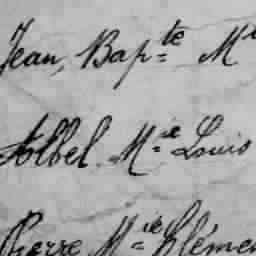 Jean, Bap^te M^e
Abel M^ie Louis
Pierre M^ie Clémen